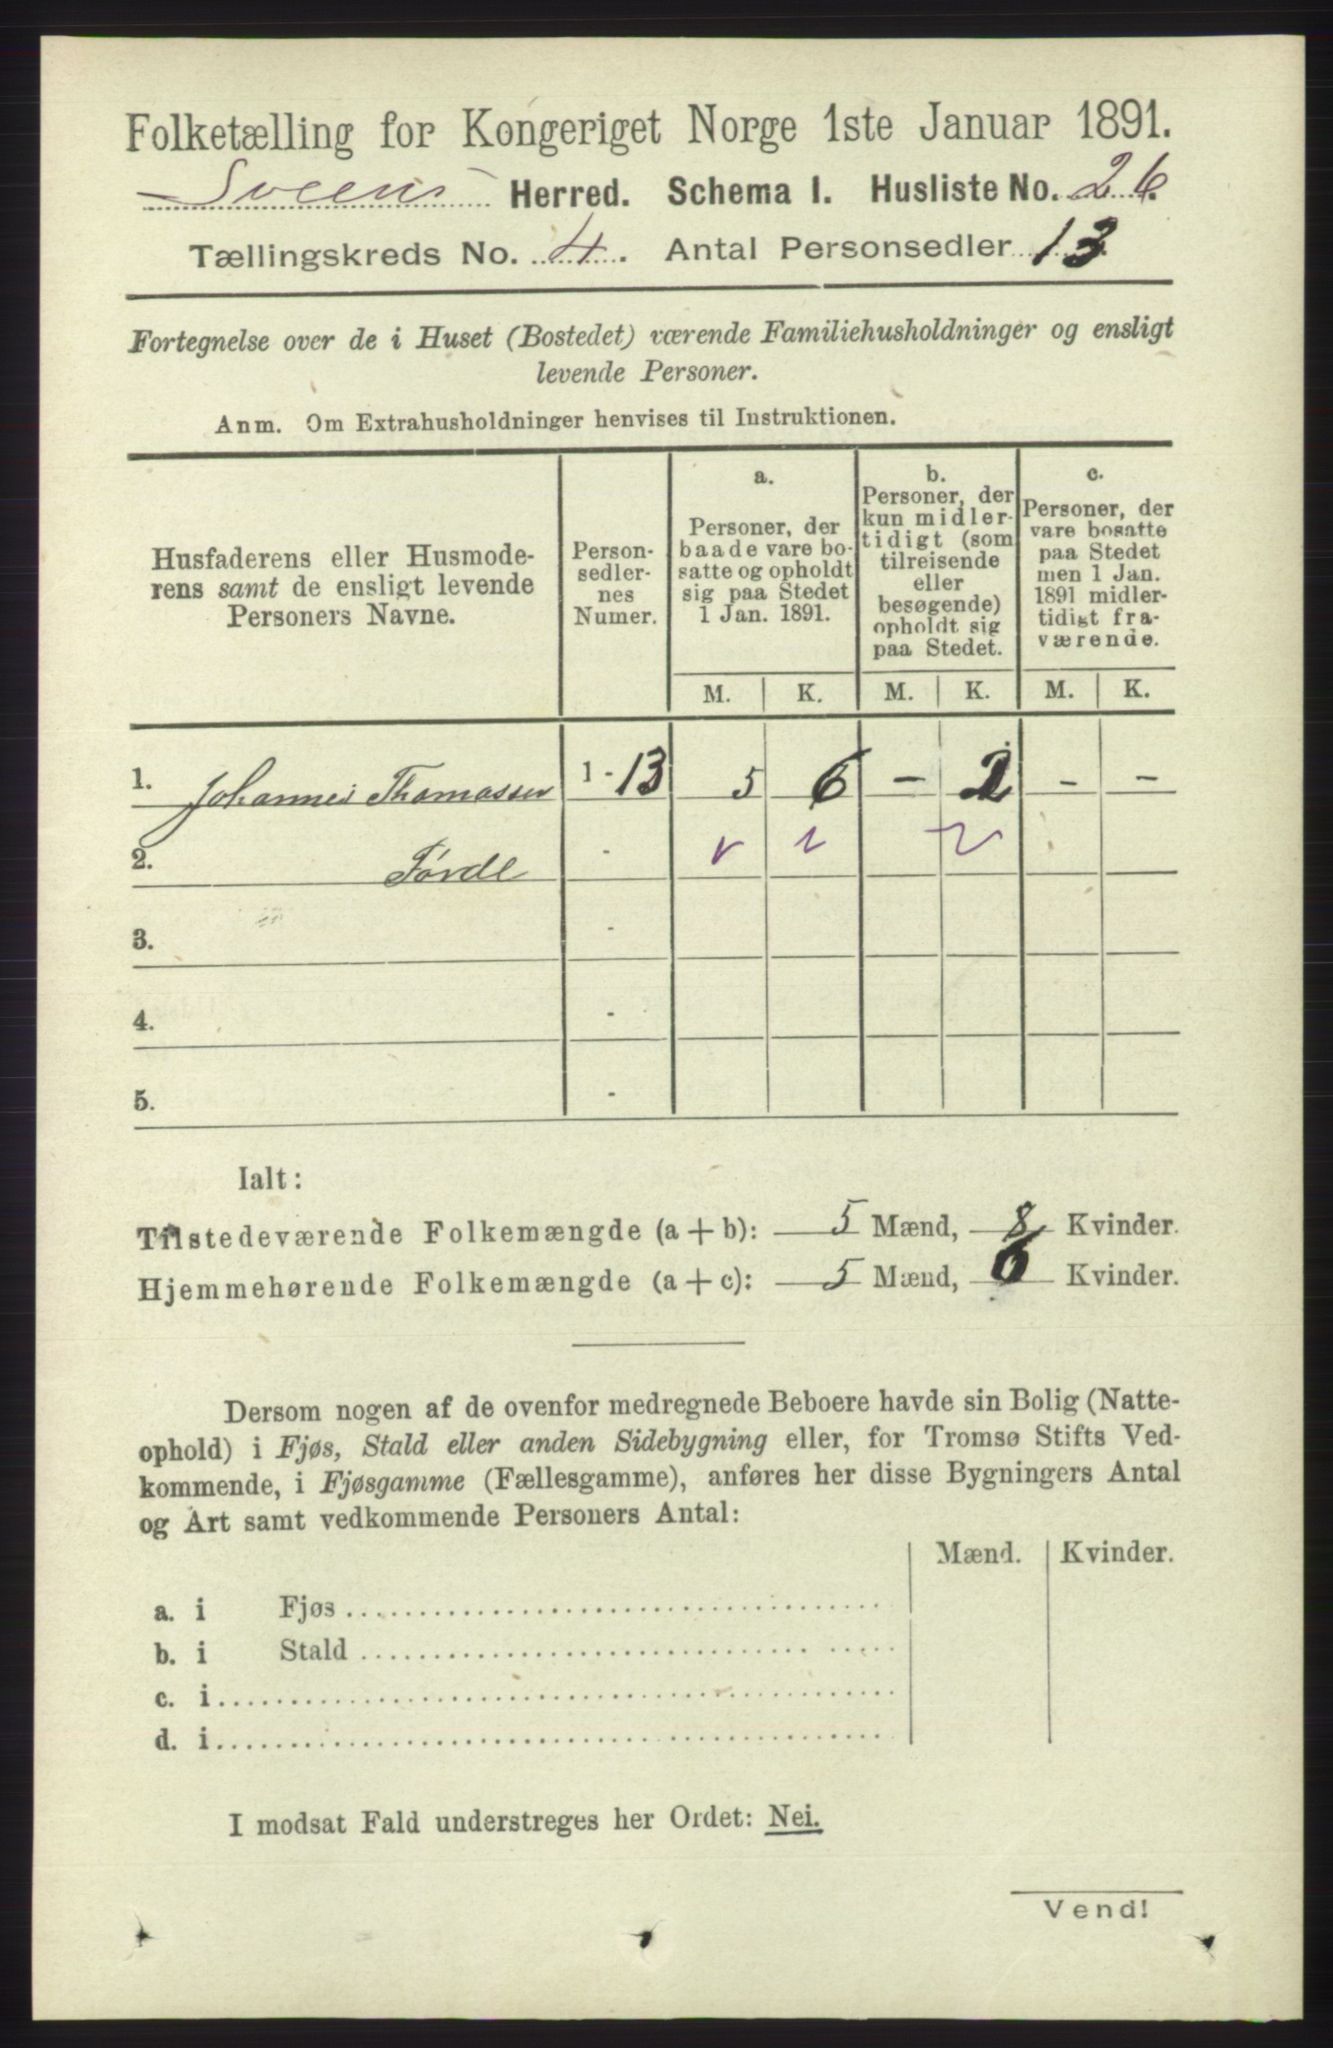 Folketælling for Kongeriget Norge 1ste Januar 1891.
Sveens Herred. Schema I. Husliste No. 26.
Tællingskreds No. 4. Antal Personsedler 13.
Fortegnelse over de i Huset (Bostedet) værende Familiehusholdninger og ensligt
levende Personer.
Anm. Om Extrahusholdninger henvises til Instruktionen.
Husfaderens eller Husmode-
rens samt de ensligt levende
Personers Navne.
Person-
sedler-
nes
Numer.
a.
Personer, der
baade vare bo-
satte og opholdt
sig paa Stedet
1 Jan. 1891.
b.
Personer, der
kun midler-
tidigt (som
tilreisende
eller
besøgende)
opholdt sig
paa Stedet.
c.
Personer, der
vare bosatte
paa Stedet
men 1 Jan.
1891 midler-
tidigt fra-
værende.
M. K. M. K. M. K.
1. Johannes Thomassen 1 - 13 5 6 - 2 - -
2. Førde -
3. -
4. -
5. -
Ialt:
Tilstedeværende Folkemængde (a + b): 5 Mænd, 8 Kvinder.
Hjemmehørende Folkemængde (a + c): 5 Mænd, 6 Kvinder.
Dersom nogen af de ovenfor medregnede Beboere havde sin Bolig (Natte-
ophold) i Fjøs, Stald eller anden Sidebygning eller, for Tromsø Stifts Ved-
kommende, i Fjøsgamme (Fællesgamme), anføres her disse Bygningers Antal
og Art samt vedkommende Personers Antal:
Mænd. Kvinder.
a. i Fjøs
b. i Stald
c. i
d. i
I modsat Fald understreges her Ordet: Nei.
Vend!